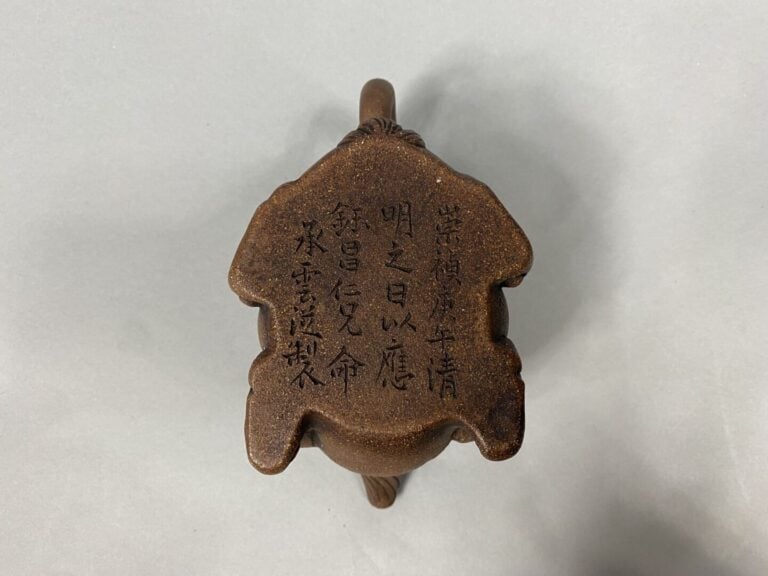 崇禎庚午清
明之日以應
鈺昌仁兄命
承雲從製